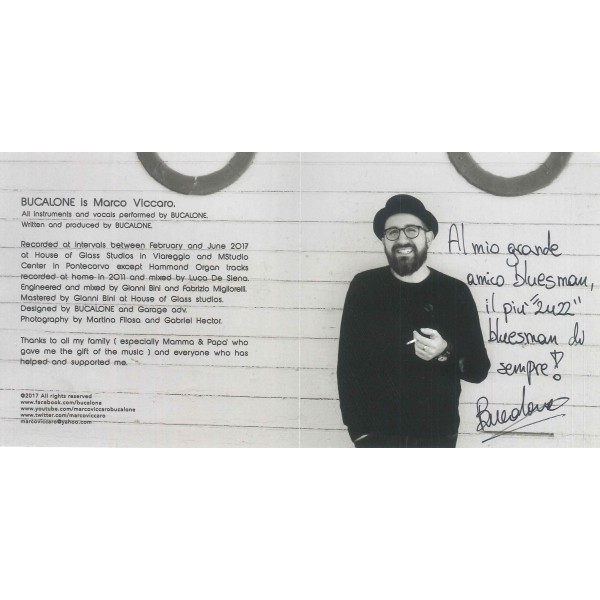 BUCALONE is Marco Viccaro.
All instruments and vocals performed by BUCALONE.
Written and produced by BUCALONE.
Recorded at intervals between February and June 2017
at House of Glass Studios in Viareggio and MStudio
Center in Pontecorvo except Hammond Organ tracks
recorded at home in 2011 and mixed by Luca De Siena.
Engineered and mixed by Gianni Bini and Fabrizio Migliorelli.
Mastered by Gianni Bini at House of Glass studios.
Designed by BUCALONE and Garage adv.
Photography by Martina Filosa and Gabriel Hector.
Thanks to all my family ( especially Mamma & Papa' who
gave me the gift of the music ) and everyone who has
helped and supported me.
©2017 All rights reserved
www.facebook.com/bucalone
www.youtube.com/marcoviccarobucalone
www.twitter.com/marcoviccaro
marcoviccaro@yahoo.com
Al mio grande
amico bluesman,
il più "2u22"
bluesman di
sempre!
Bucalone